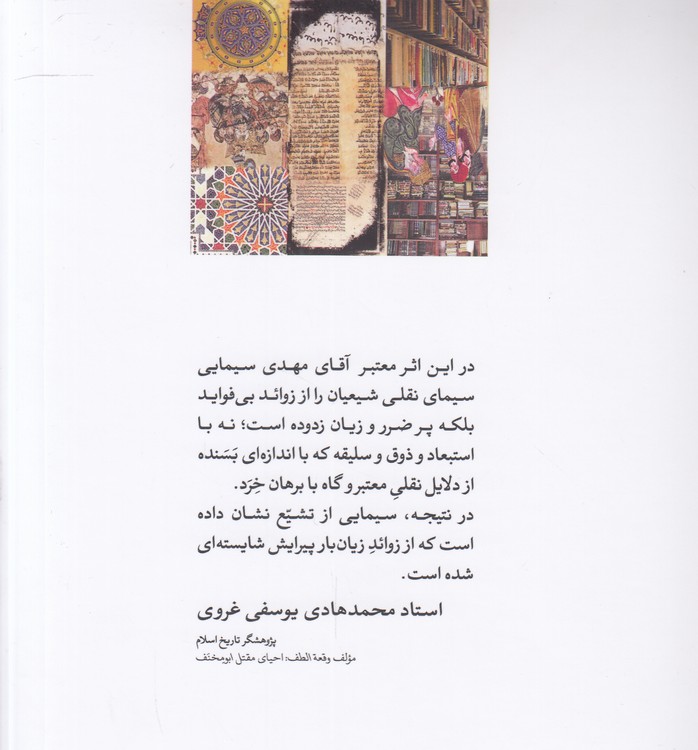 در این اثر معتبر آقای مهدی سیمایی
سیمای نقلی شیعیان را از زوائد بی‌فواید
بلکه پر ضرر و زیان زدوده است؛ نه با
استبعاد و ذوق و سلیقه که با اندازه‌ای بَسَنده
از دلایل نقلیِ معتبر و گاه با برهان خِرَد.
در نتیجه، سیمایی از تشیّع نشان داده
است که از زوائدِ زیان‌بار پیرایش شایسته‌ای
شده است.
استاد محمدهادی یوسفی غروی
پژوهشگر تاریخ اسلام
مؤلف وقعة الطف: احیای مقتل ابومخنَف